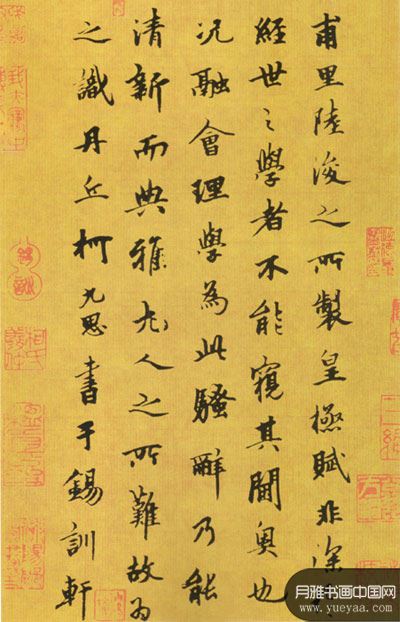 甫里陸浚之所製皇極賦非深
經世之學者不能窺其閫奧也
况融會理學為此騷辭乃能
清新而典雅尤人之所難故為
之識丹丘柯九思書于錫訓軒
月雅书画中国网
www.yueyaa.com